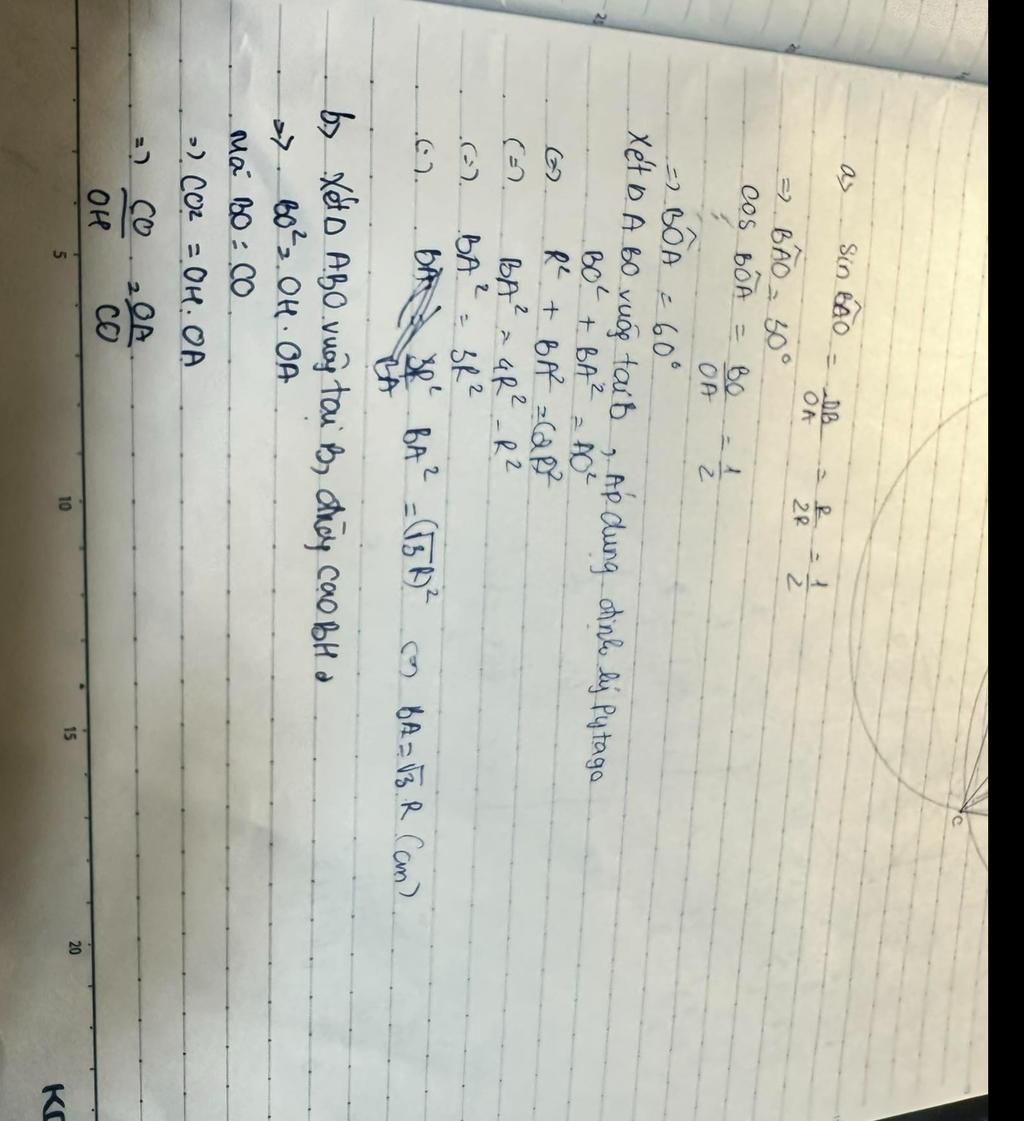 C
a, sin BÂO = OB/OA = R/2R = 1/2
=> BÂO = 30°
cos BÔA = BO/OA = 1/2
=> BÔA = 60°
Xét Δ ABO vuông tại B, Áp dụng định lý Pytago
BO² + BA² = AO²
(=) R² + BA² = (2R)²
(=) BA² = 4R² - R²
(=) BA² = 3R²
(=) BA² = (√3 R)² (=) BA = √3 . R (cm)
b, Xét Δ ABO vuông tại B, đường cao BH
=> BO² = OH . OA
Mà BO = CO
=> CO2 = OH . OA
=> CO/OH = OA/CO
5 10 15 20